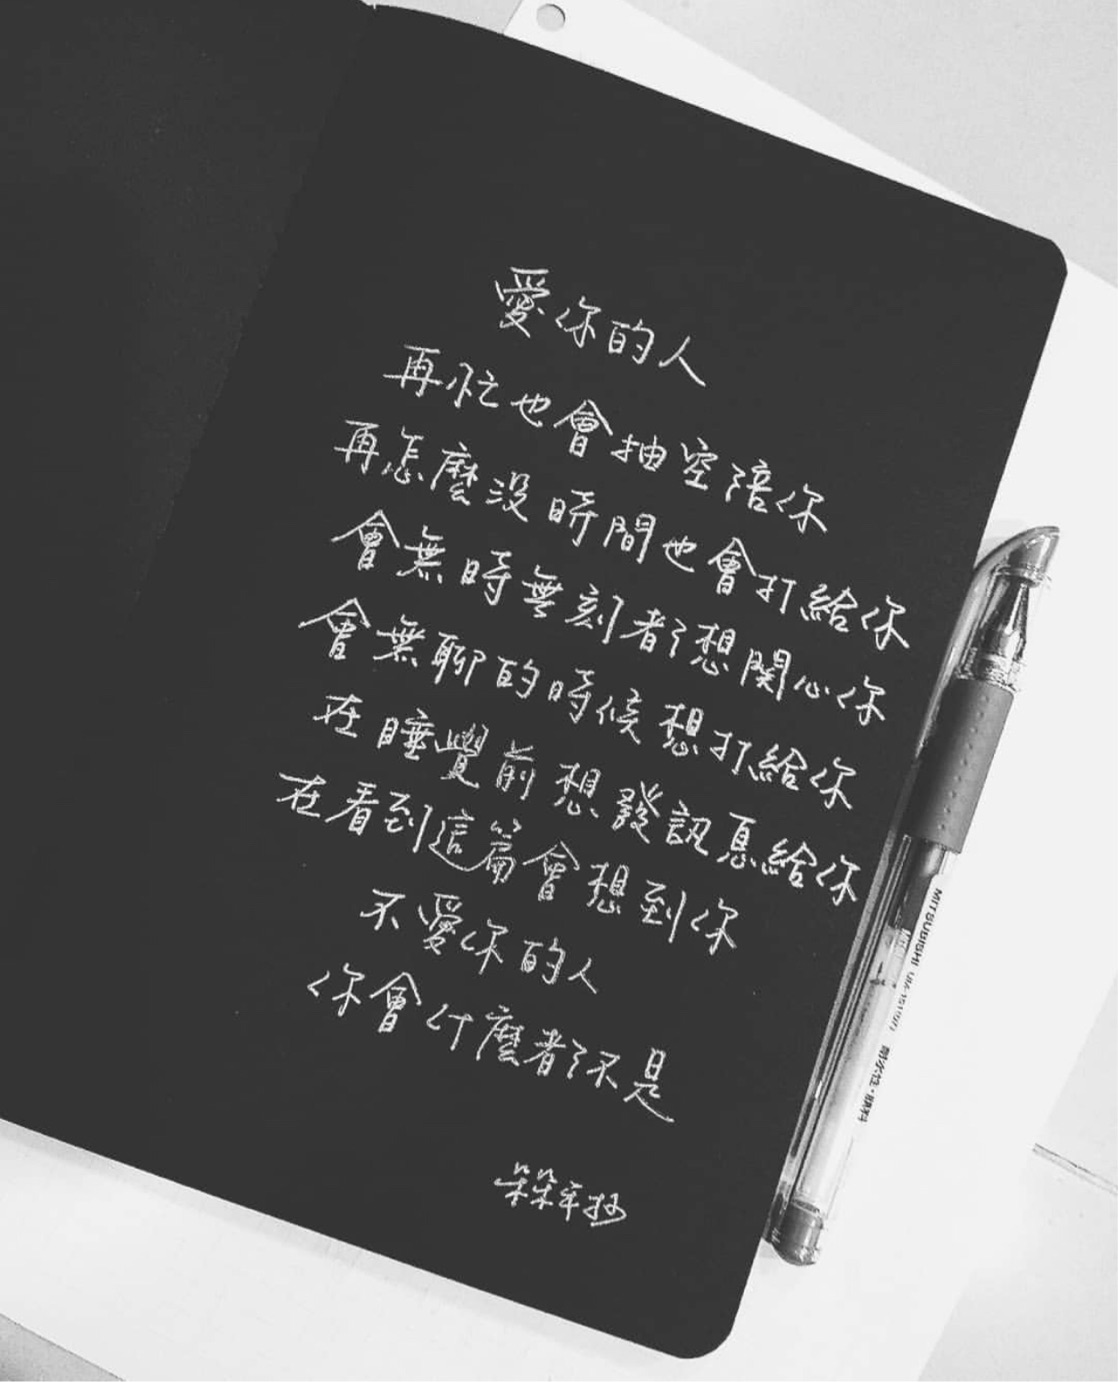 愛你的人
再忙也會抽空陪你
再怎麼沒時間也會打給你
會無時無刻都想關心你
會無聊的時候想打給你
在睡覺前想發訊息給你
在看到這篇會想到你
不愛你的人
你會什麼都不是
呆呆手抄
MITSUBISHI UM-151
耐水性・顔料